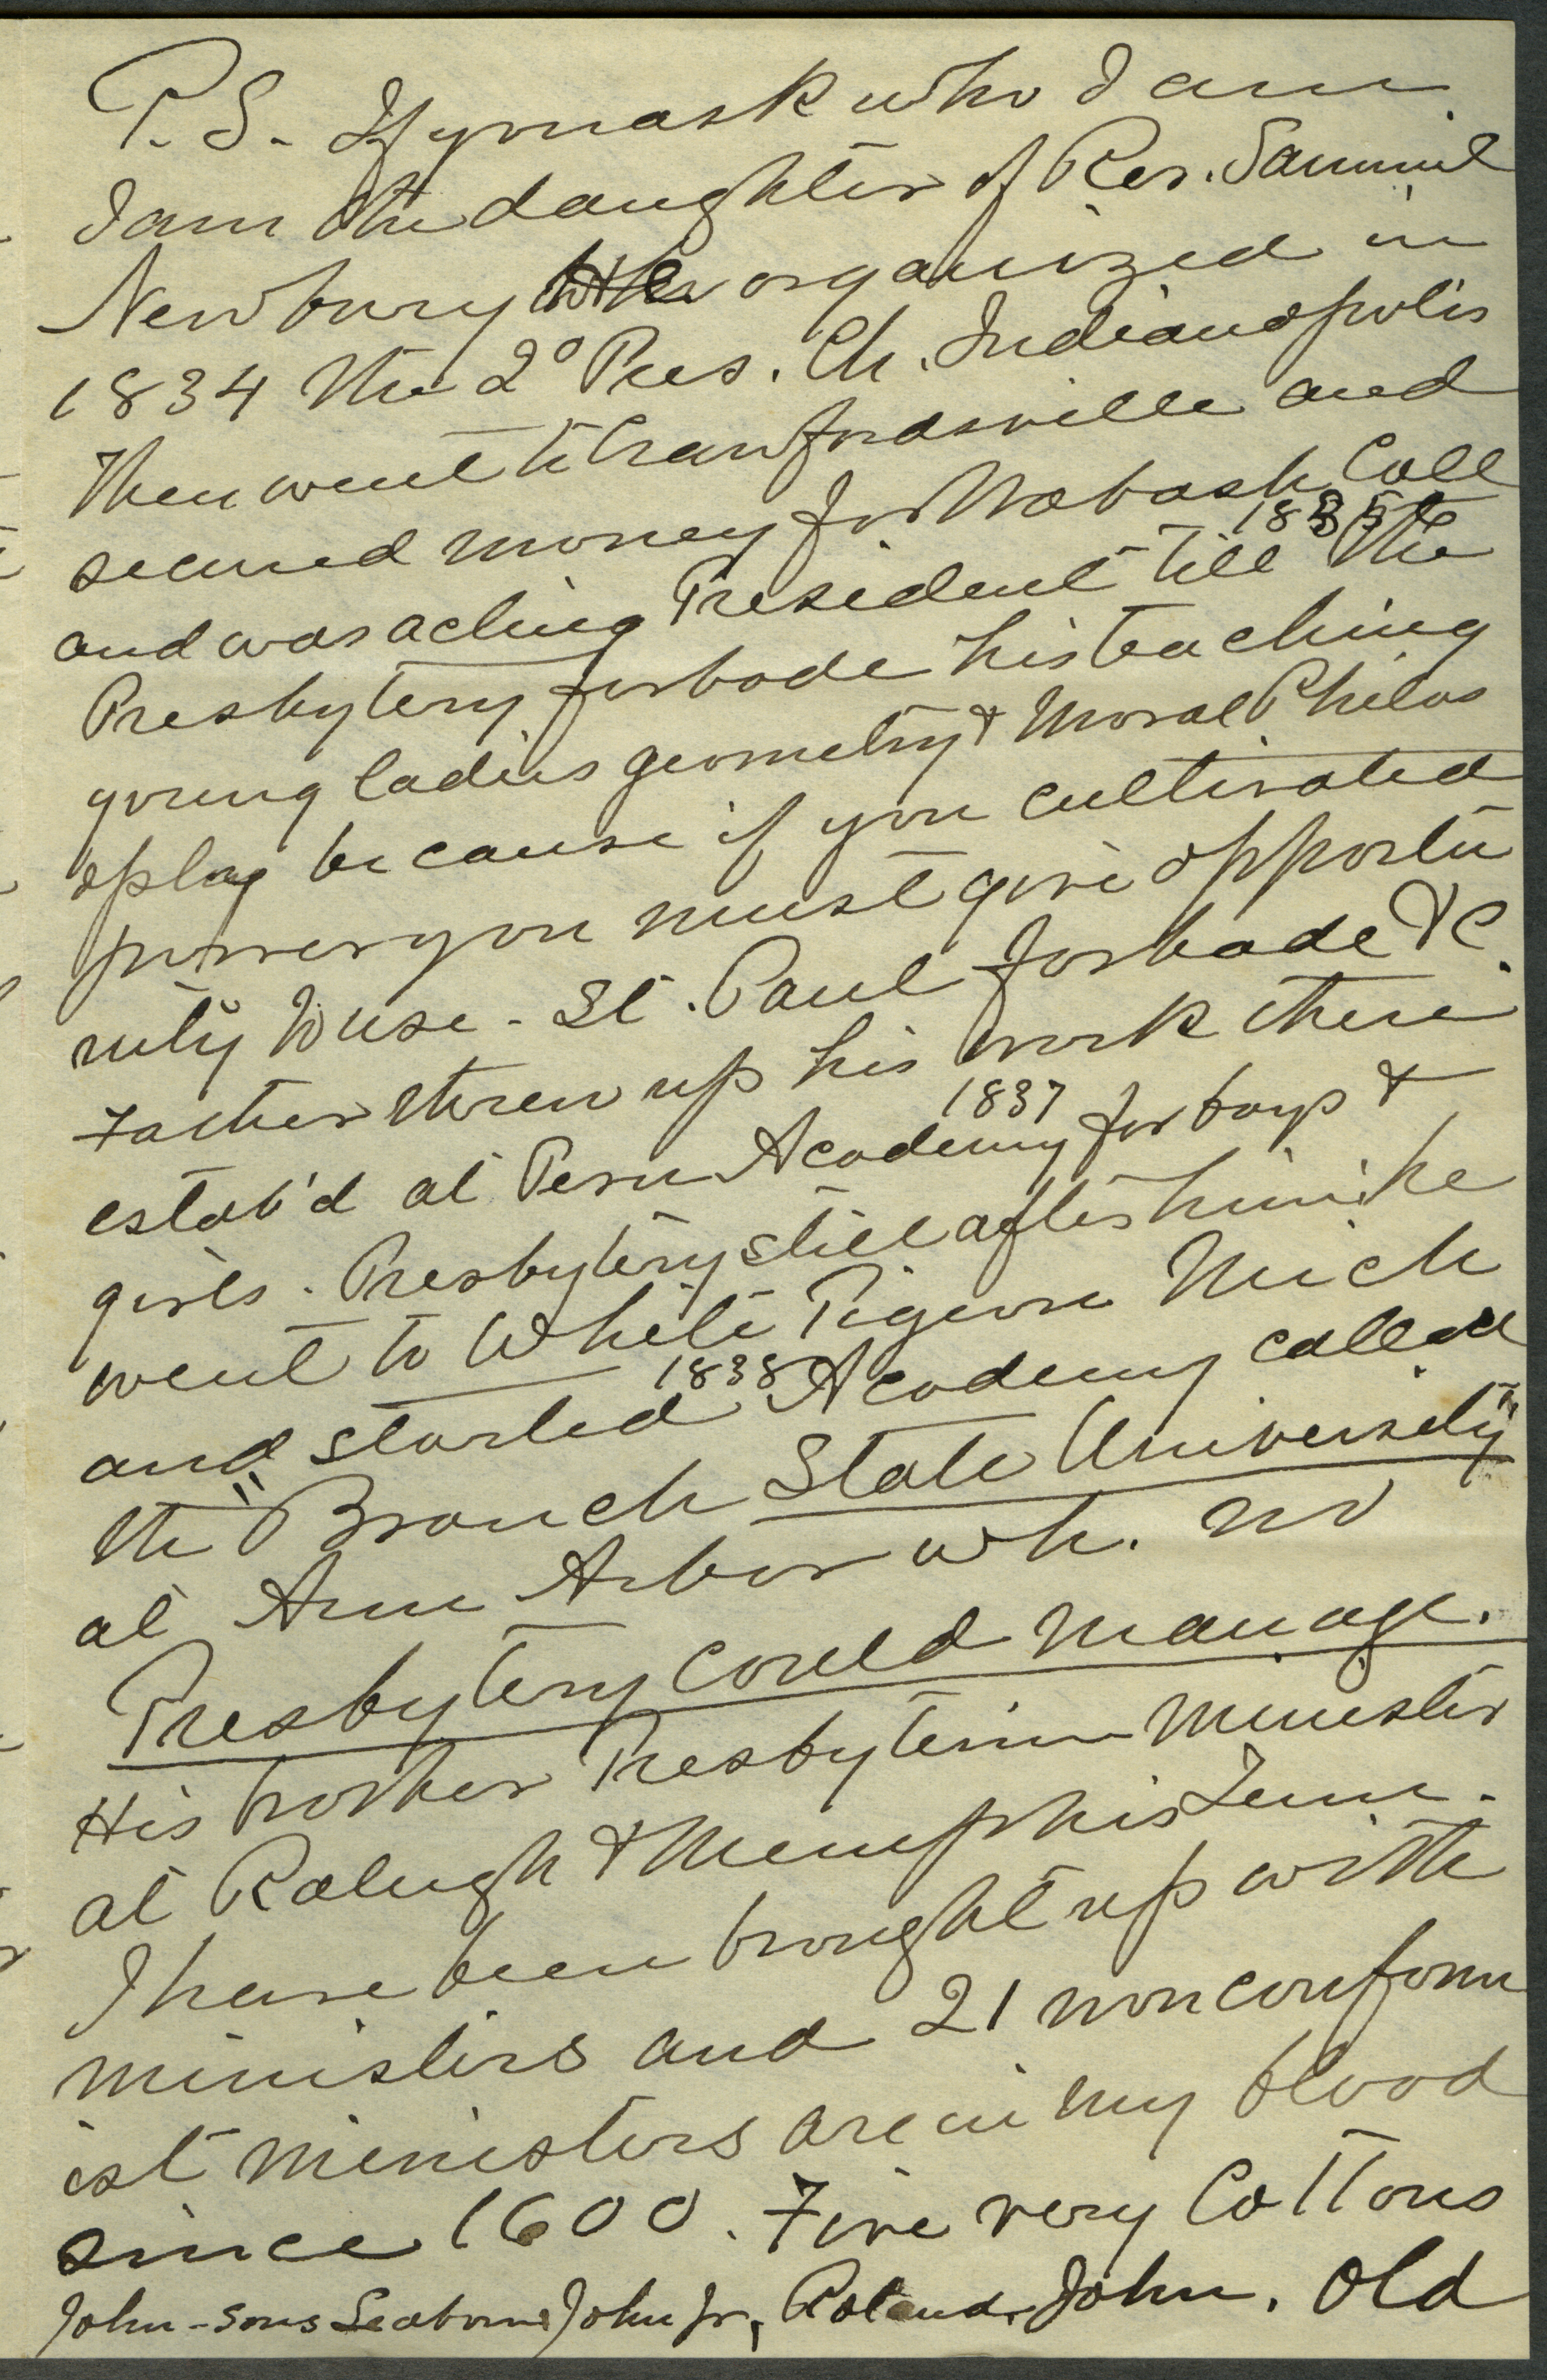 P.S. If you ask who I am
I am the daughter of Rev. Samuel
Newbury who organized in
1834 the 2° Pres. Ch. Indianapolis
Then went to Crawfordsville and
secured money for Wabash Coll
and was acting President till 1835 the
Presbytery forbode his teaching
young ladies geometry & Moral Philos
ophy because if you cultivated
powers you must give opportu
nity to use. St. Paul forbade &c.
Father threw up his work there
estab'd at Peru Academy 1837 for boys &
girls. Presbytery still after him, he
went to White Pigeon Mich
and started 1838 Academy called
the "Branch State University"
at Ann Arbor wh. no
Presbytery could manage.
His brother Presbyterian Minister
at Raleigh & Memphis Tenn.
I have been brought up with
ministers and 21 nonconform
ist ministers are in my blood
since 1600. Five very Cottons
John - sons Seaborn John Jr, Roland, John. Old